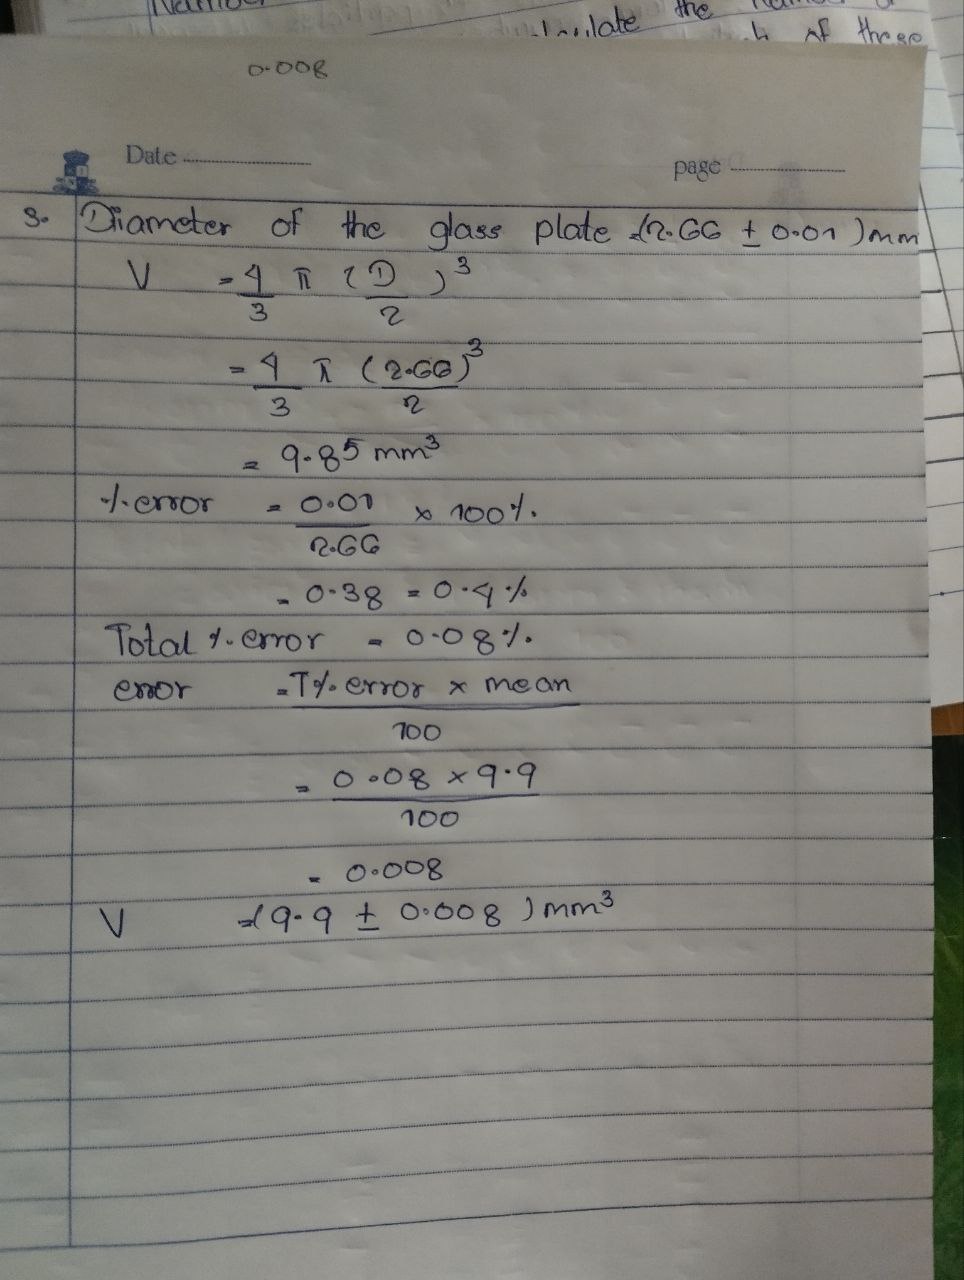 Number
calculate the
of these
0.008
Date
page
3. Diameter of the glass plate =(2.66 ± 0.01) mm
V = 4/3 π (D/2)³
= 4/3 π (2.66/2)³
= 9.85 mm³
% error = 0.01/2.66 × 100%
= 0.38 = 0.4%
Total % error = 0.08%
error = T% error × mean / 100
= 0.08 × 9.9 / 100
= 0.008
V =(9.9 ± 0.008) mm³